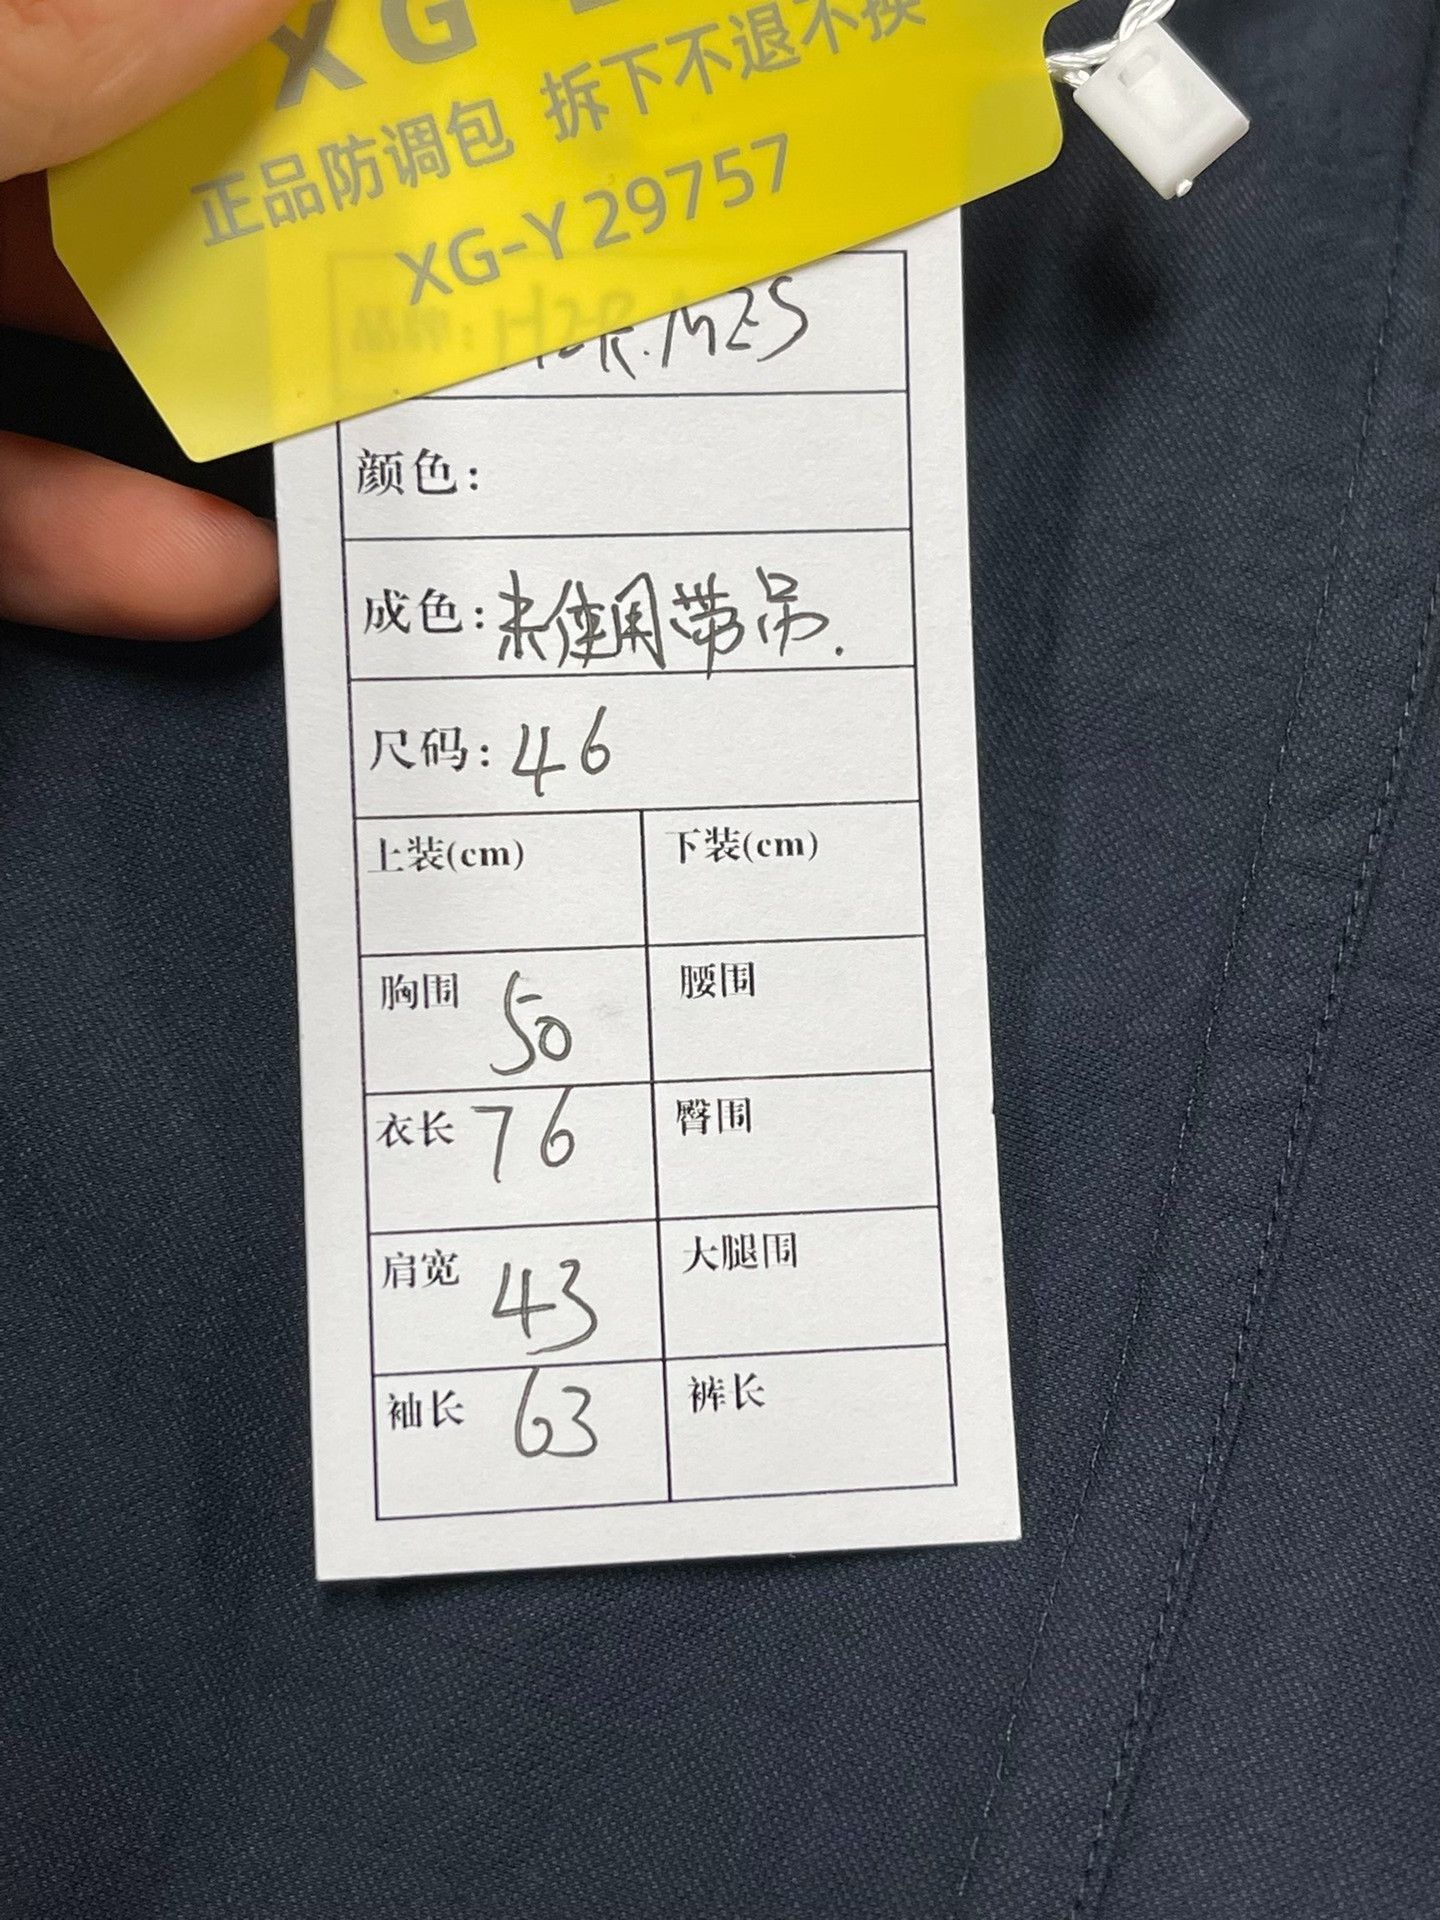 XG
正品防调包 拆下不退不换
XG-Y 29757
品牌: HERMES
颜色:
成色: 未使用带吊.
尺码: 46
上装(cm) 下装(cm)
胸围 50 腰围
衣长 76 臀围
肩宽 43 大腿围
袖长 63 裤长